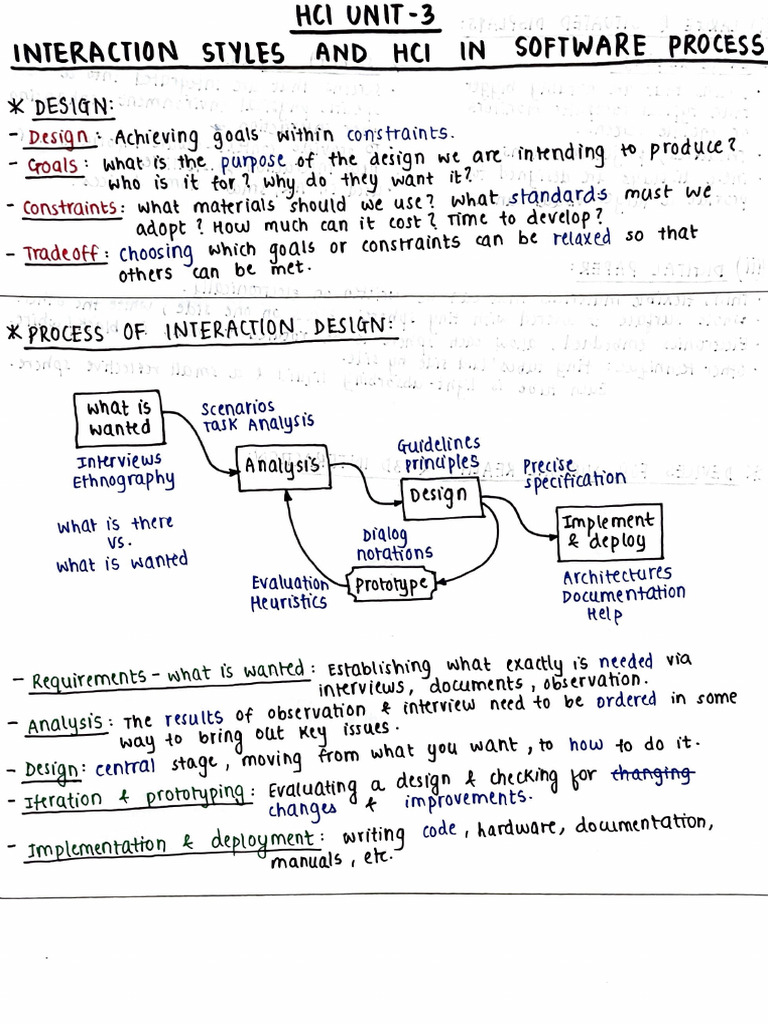 HCI UNIT-3
INTERACTION STYLES AND HCI IN SOFTWARE PROCESS
* DESIGN:
- Design: Achieving goals within constraints.
- Goals: what is the purpose of the design we are intending to produce?
who is it for? why do they want it?
- Constraints: what materials should we use? what standards must we
adopt? How much can it cost? Time to develop?
- Tradeoff: choosing which goals or constraints can be relaxed so that
others can be met.
* PROCESS OF INTERACTION DESIGN:
what is
wanted
Scenarios
Task Analysis
Interviews
Ethnography
Analysis
Guidelines
principles
Precise
specification
Design
what is there
vs.
what is wanted
Dialog
notations
Implement
& deploy
Evaluation
Heuristics
Prototype
Architectures
Documentation
Help
- Requirements - what is wanted: Establishing what exactly is needed via
interviews, documents, observation.
- Analysis: The results of observation & interview need to be ordered in some
way to bring out key issues.
- Design: central stage, moving from what you want, to how to do it.
- Iteration & prototyping: Evaluating a design & checking for changing
changes & improvements.
- Implementation & deployment: writing code, hardware, documentation,
manuals, etc.